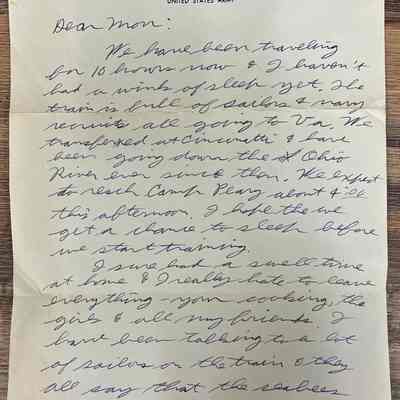 UNITED STATES ARMY
Dear Mom:
We have been traveling
for 10 hours now & I haven't
had a wink of sleep yet. The
train is full of sailors & navy
recruits all going to Va. We
transferred at Cincinatti & have
been going down the Ohio
River ever since then. We expect
to reach Camp Peary about 4:00
this afternoon. I hope the we
get a chance to sleep before
we start training.
I sure had a swell time
at home & I really hate to leave
everything - your cooking, the
girls & all my friends. I
have been talking to a lot
of sailors on the train & they
all say that the seabees